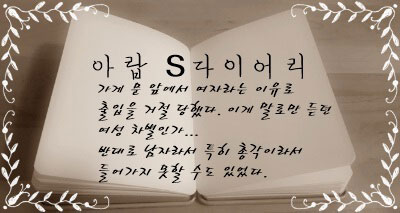 아랍 S다이어리
가게 문 앞에서 여자라는 이유로
출입을 거절 당했다. 이게 말로만 듣던
여성 차별인가...
반대로 남자라서 특히 총각이라서
들어가지 못할 수도 있었다.